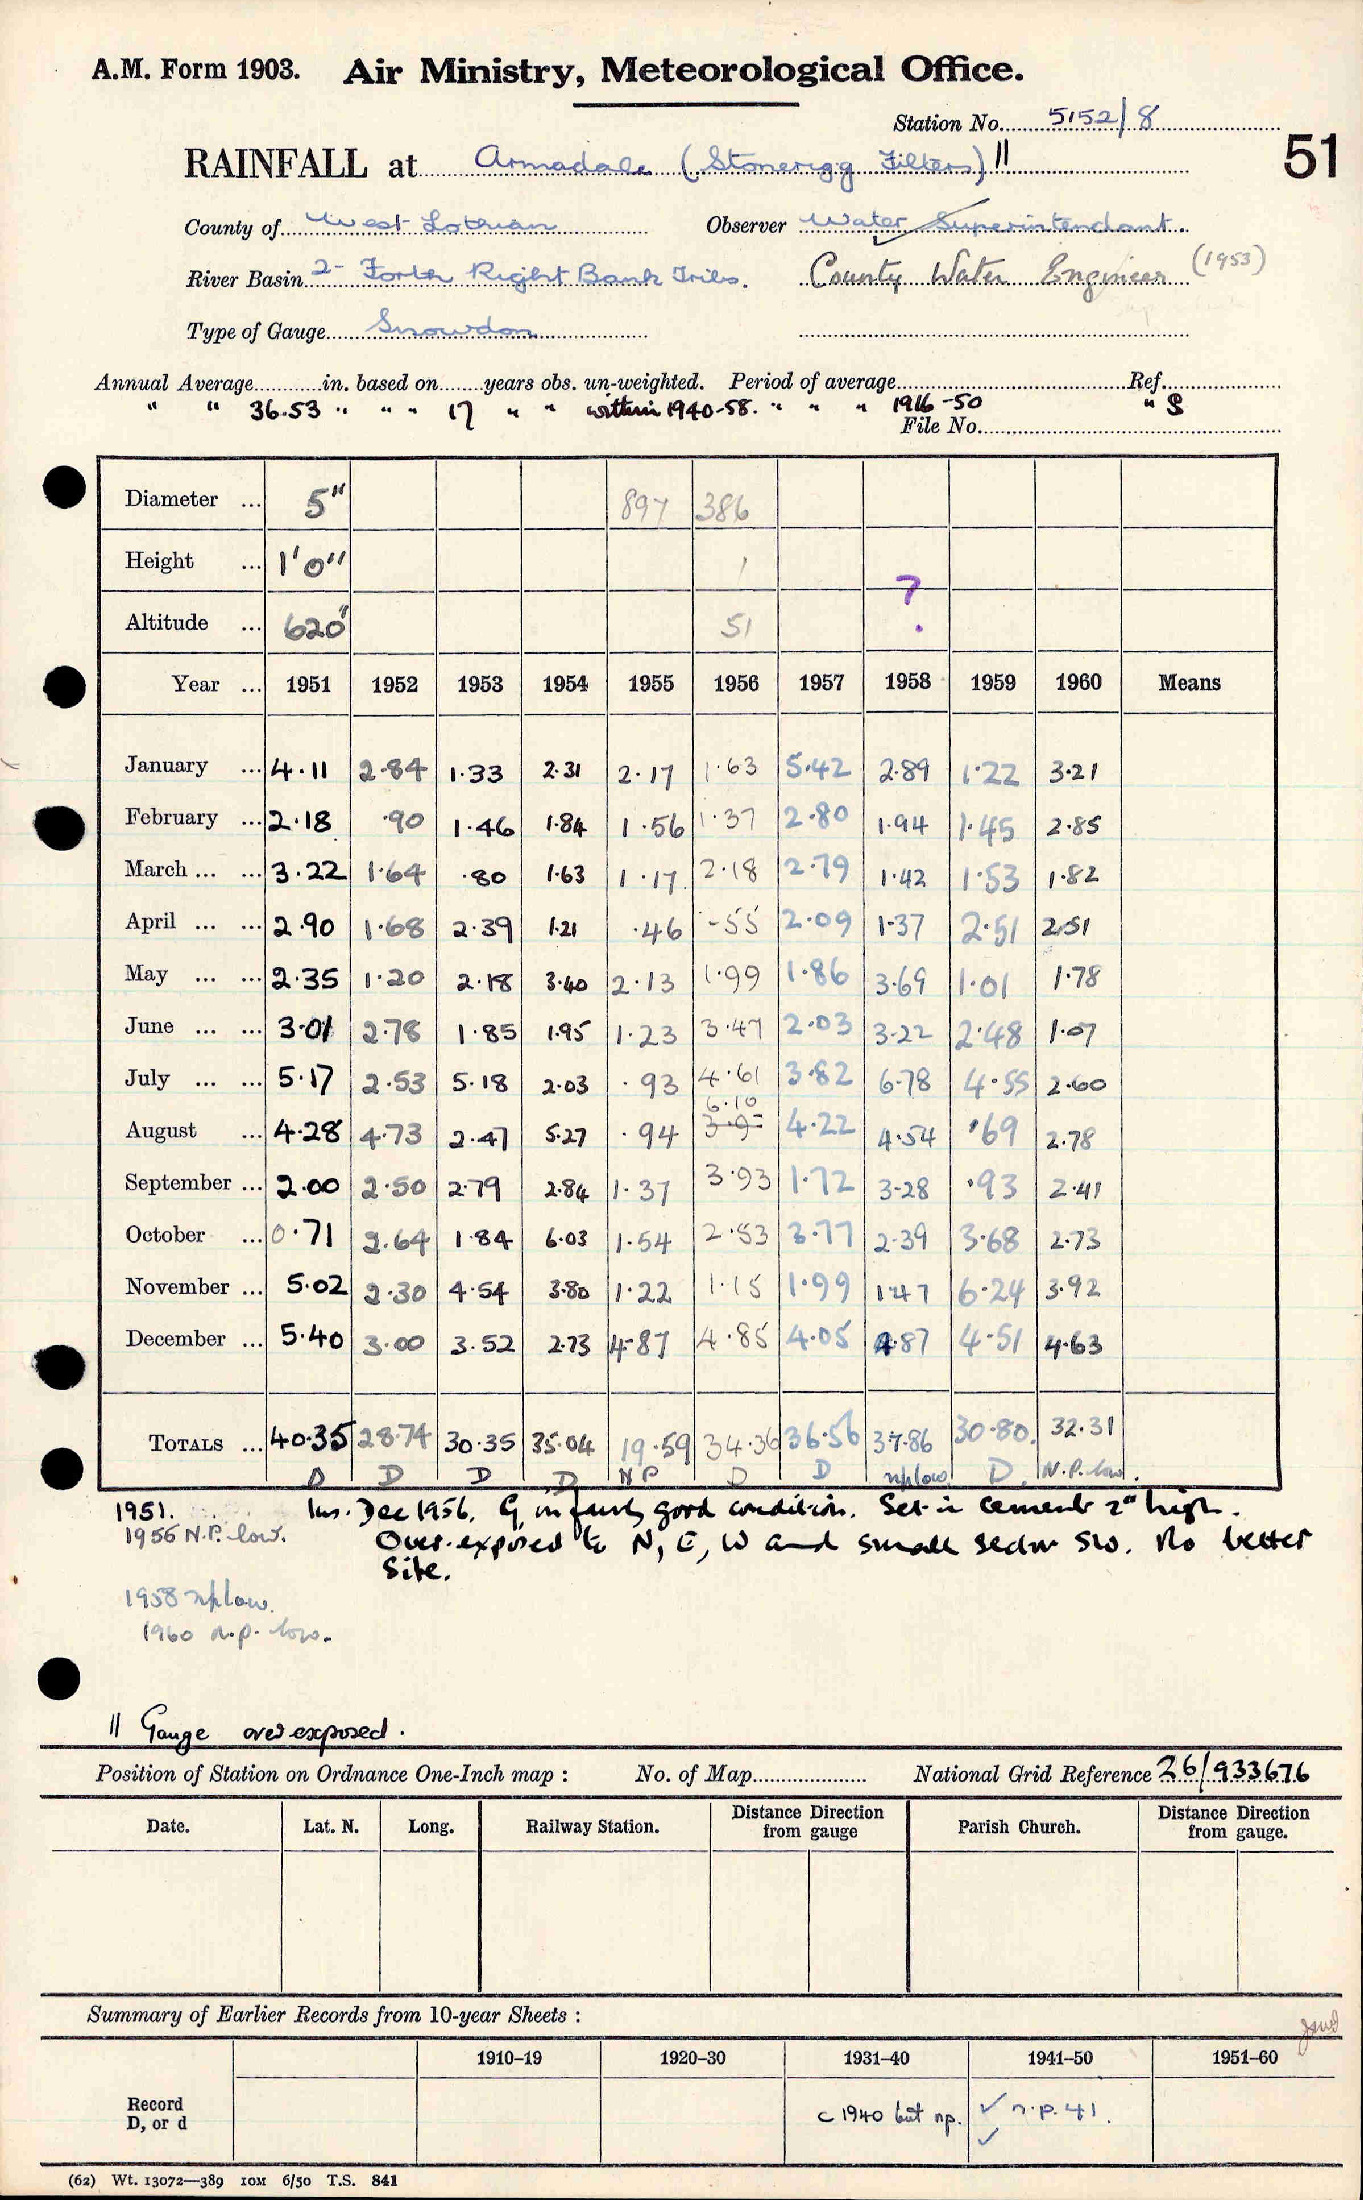 A.M. Form 1903. Air Ministry, Meteorological Office.
Station No. 5152/8
51
RAINFALL at Armadale (Stonerigg Filters) ||
County of West Lothian Observer Water Superintendant.
River Basin 2- Forth Right Bank Tribs. County Water Engineer (1953)
Type of Gauge Snowdon
Annual Average in. based on years obs. un-weighted. Period of average Ref.
" " 36.53 " " " 17 " " within 1940-58. " " " 1916-50 " S
File No.
Diameter ... 5" 897 386
Height ... 1'0" 1 ?
Altitude ... 620" 51
Year ... 1951 1952 1953 1954 1955 1956 1957 1958 1959 1960 Means
January ... 4.11 2.84 1.33 2.31 2.17 1.63 5.42 2.89 1.22 3.21
February ... 2.18 .90 1.46 1.84 1.56 1.37 2.80 1.94 1.45 2.85
March ... ... 3.22 1.64 .80 1.63 1.17 2.18 2.79 1.42 1.53 1.82
April ... ... 2.90 1.68 2.39 1.21 .46 .55 2.09 1.37 2.51 2.51
May ... ... 2.35 1.20 2.18 3.40 2.13 1.99 1.86 3.69 1.01 1.78
June ... ... 3.01 2.78 1.85 1.95 1.23 3.47 2.03 3.22 2.48 1.07
July ... ... 5.17 2.53 5.18 2.03 .93 4.61 3.82 6.78 4.55 2.60
August ... 4.28 4.73 2.47 5.27 .94 6.10 4.22 4.54 .69 2.78
September ... 2.00 2.50 2.79 2.84 1.37 3.93 1.72 3.28 .93 2.41
October ... 0.71 2.64 1.84 6.03 1.54 2.53 3.77 2.39 3.68 2.73
November ... 5.02 2.30 4.54 3.80 1.22 1.15 1.99 1.47 6.24 3.92
December ... 5.40 3.00 3.52 2.73 4.87 4.85 4.05 4.87 4.51 4.63
TOTALS ... 40.35 28.74 30.35 35.04 19.59 34.36 36.56 37.86 30.80. 32.31
D D D D N P D D nplow D. N.P. low.
1951. Ins. Dec 1956. G. in fairly good condition. Set in cement 2" high.
1955 N.P. low. Over-exposed to N, E, W and small sector SW. No better
Site.
1958 nplow.
1960 n.p. low.
|| Gauge over exposed.
Position of Station on Ordnance One-Inch map : No. of Map National Grid Reference 26/933676
Date. Lat. N. Long. Railway Station. Distance Direction from gauge Parish Church. Distance Direction from gauge.
Summary of Earlier Records from 10-year Sheets :
1910–19 1920–30 1931–40 1941–50 1951–60
Record
D, or d c 1940 but np. ✓ n.p. 41.
✓
(62) Wt. 13072—389 10M 6/50 T.S. 841